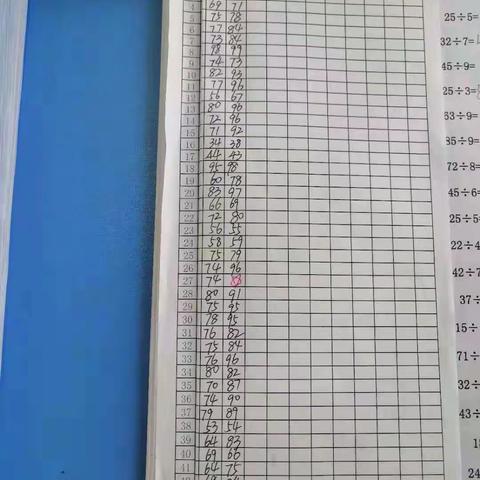 4 69 71
5 75 78
6 77 84
7 73 84
8 98 99
9 74 73
10 82 93
11 77 96
12 56 67
13 80 96
14 72 96
15 71 92
16 34 38
17 44 43
18 95 98
19 60 78
20 83 97
21 66 69
22 72 80
23 56 55
24 58 59
25 75 79
26 74 96
27 74
28 80 91
29 75 95
30 78 95
31 76 82
32 75 84
33 76 96
34 80 82
35 70 87
36 74 90
37 79 89
38 53 54
39 64 83
40 69 66
41 64 75
25÷5=
32÷7=
45÷9=
25÷3=
63÷9=
85÷9=
72÷8=
45÷6=
25÷5=
22÷4
42÷7
37÷
15÷
71÷
32÷
43÷
24